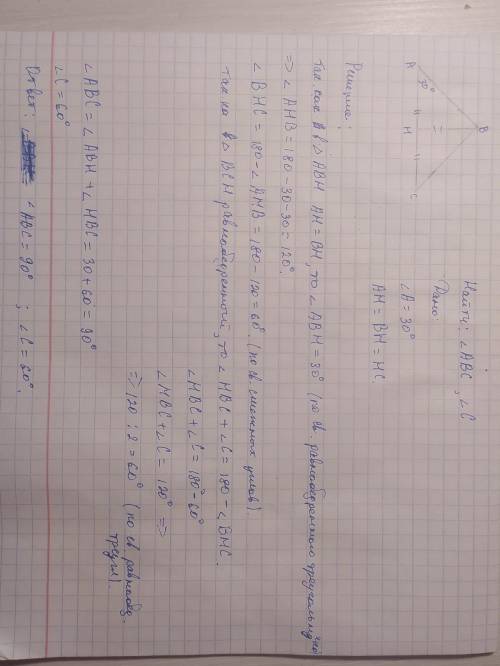 Найти: ∠ABC, ∠C
Дано:
∠A = 30°
AH = BH = HC
B
A
30°
H
C
Решение:
Так как в △ABH AH = BH, то ∠ABH = 30° (по св. равнобедренного треугольника)
=> ∠AHB = 180 - 30 - 30 = 120°.
∠BHC = 180 - ∠AHB = 180 - 120 = 60°. (по св. смежных углов).
так ка в △BCH равнобедренный, то ∠HBC + ∠C = 180 - ∠BHC.
∠HBC + ∠C = 180° - 60°
∠HBC + ∠C = 120° =>
=> 120 : 2 = 60° (по св равнобед. треугл).
∠ABC = ∠ABH + ∠HBC = 30 + 60 = 90°
∠C = 60°
Ответ: ∠ABC = 90° ; ∠C = 60°.